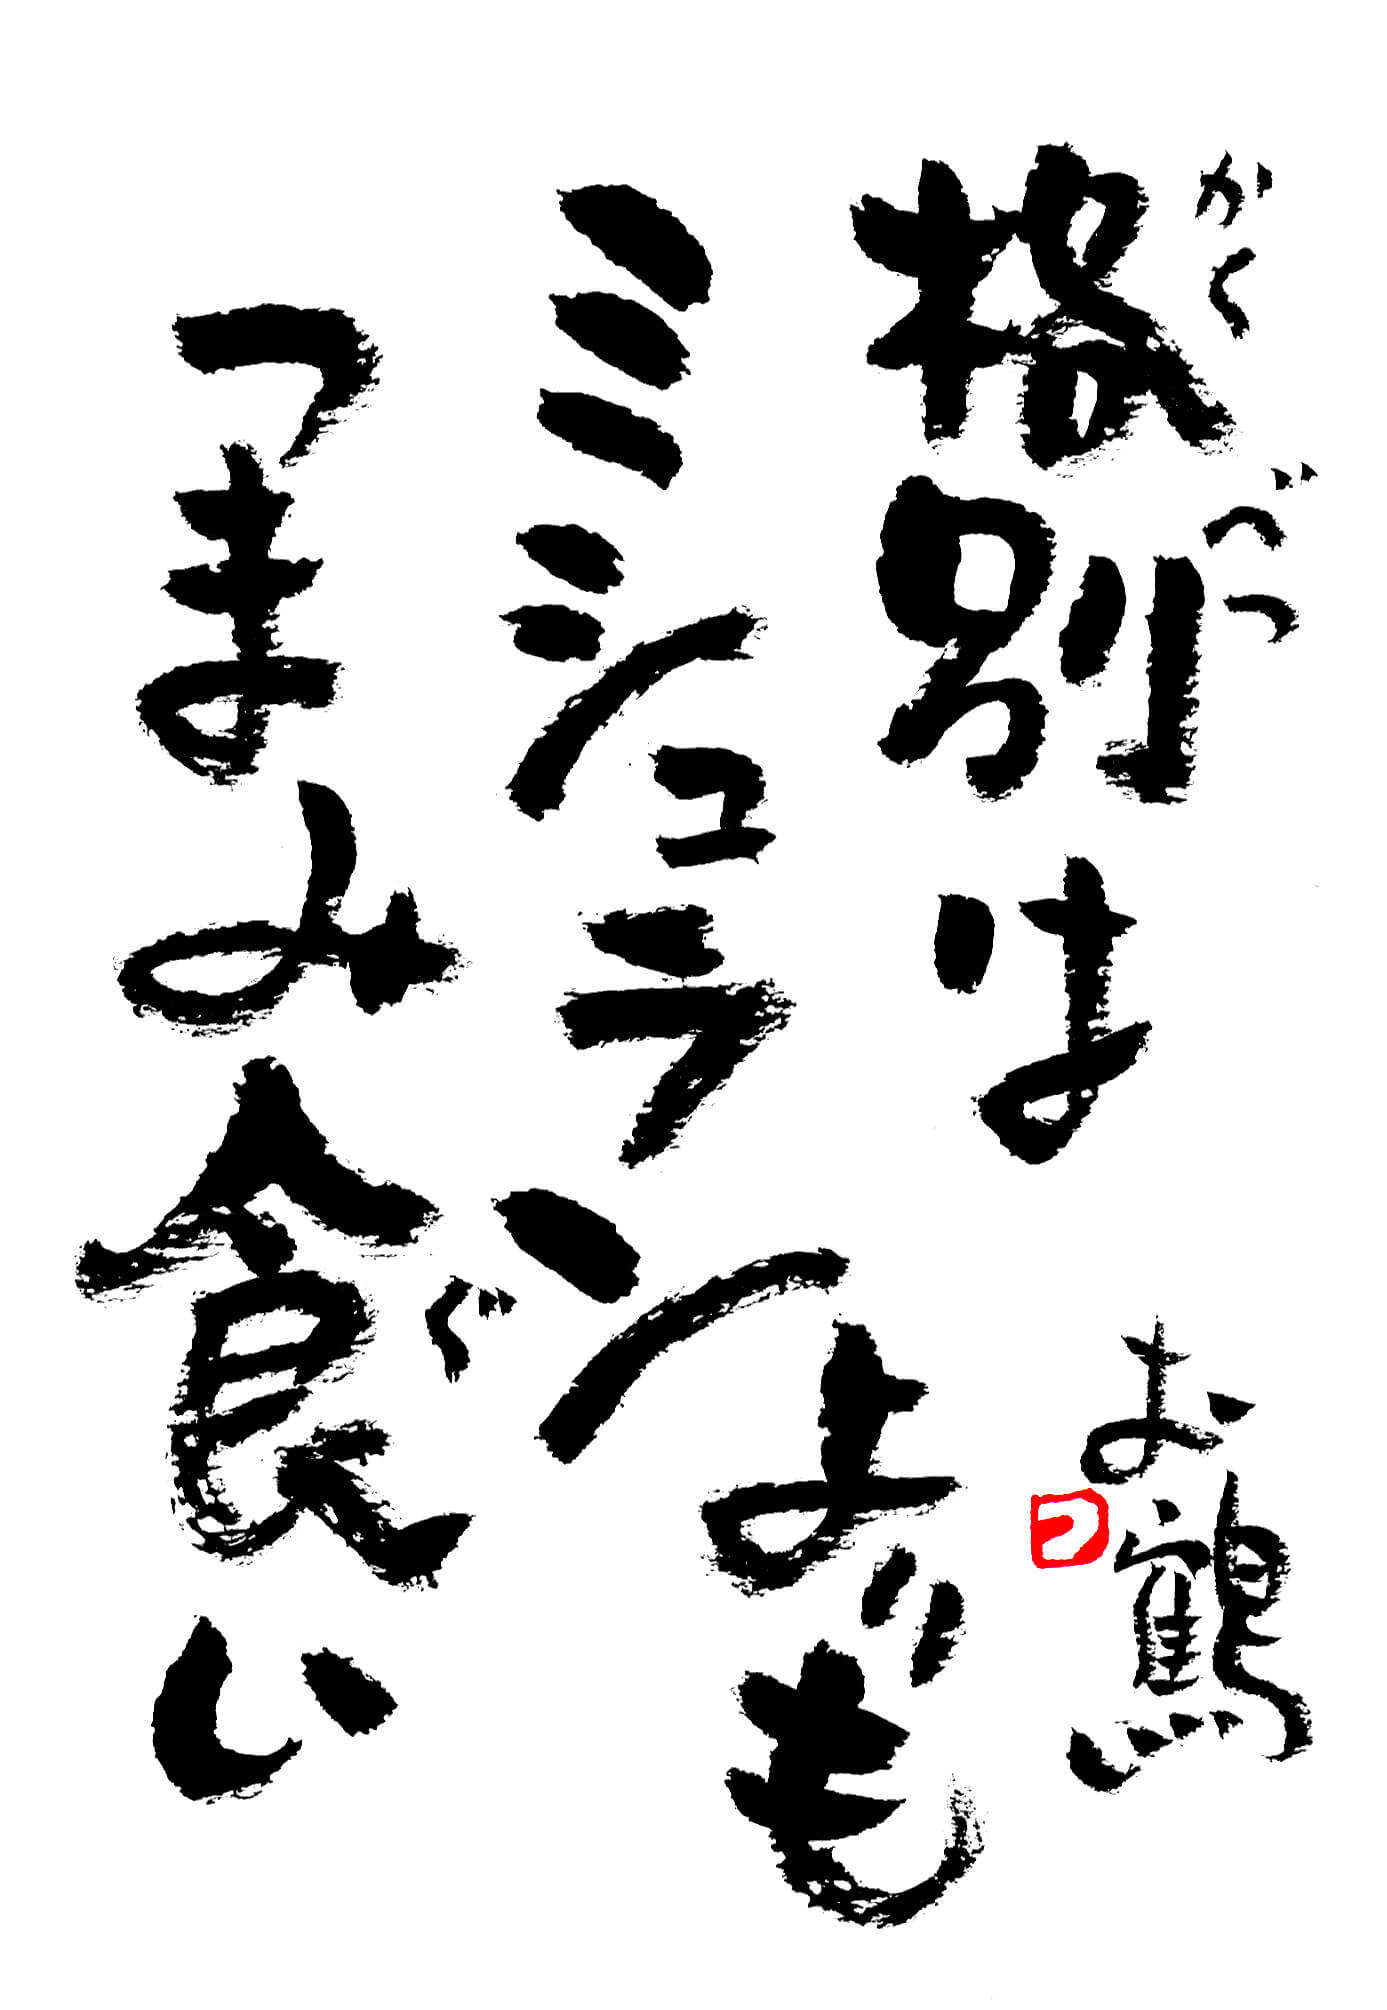 格別は
かくべつ
ミシュランよりも
つまみ食い
ぐ
お鶴
つ